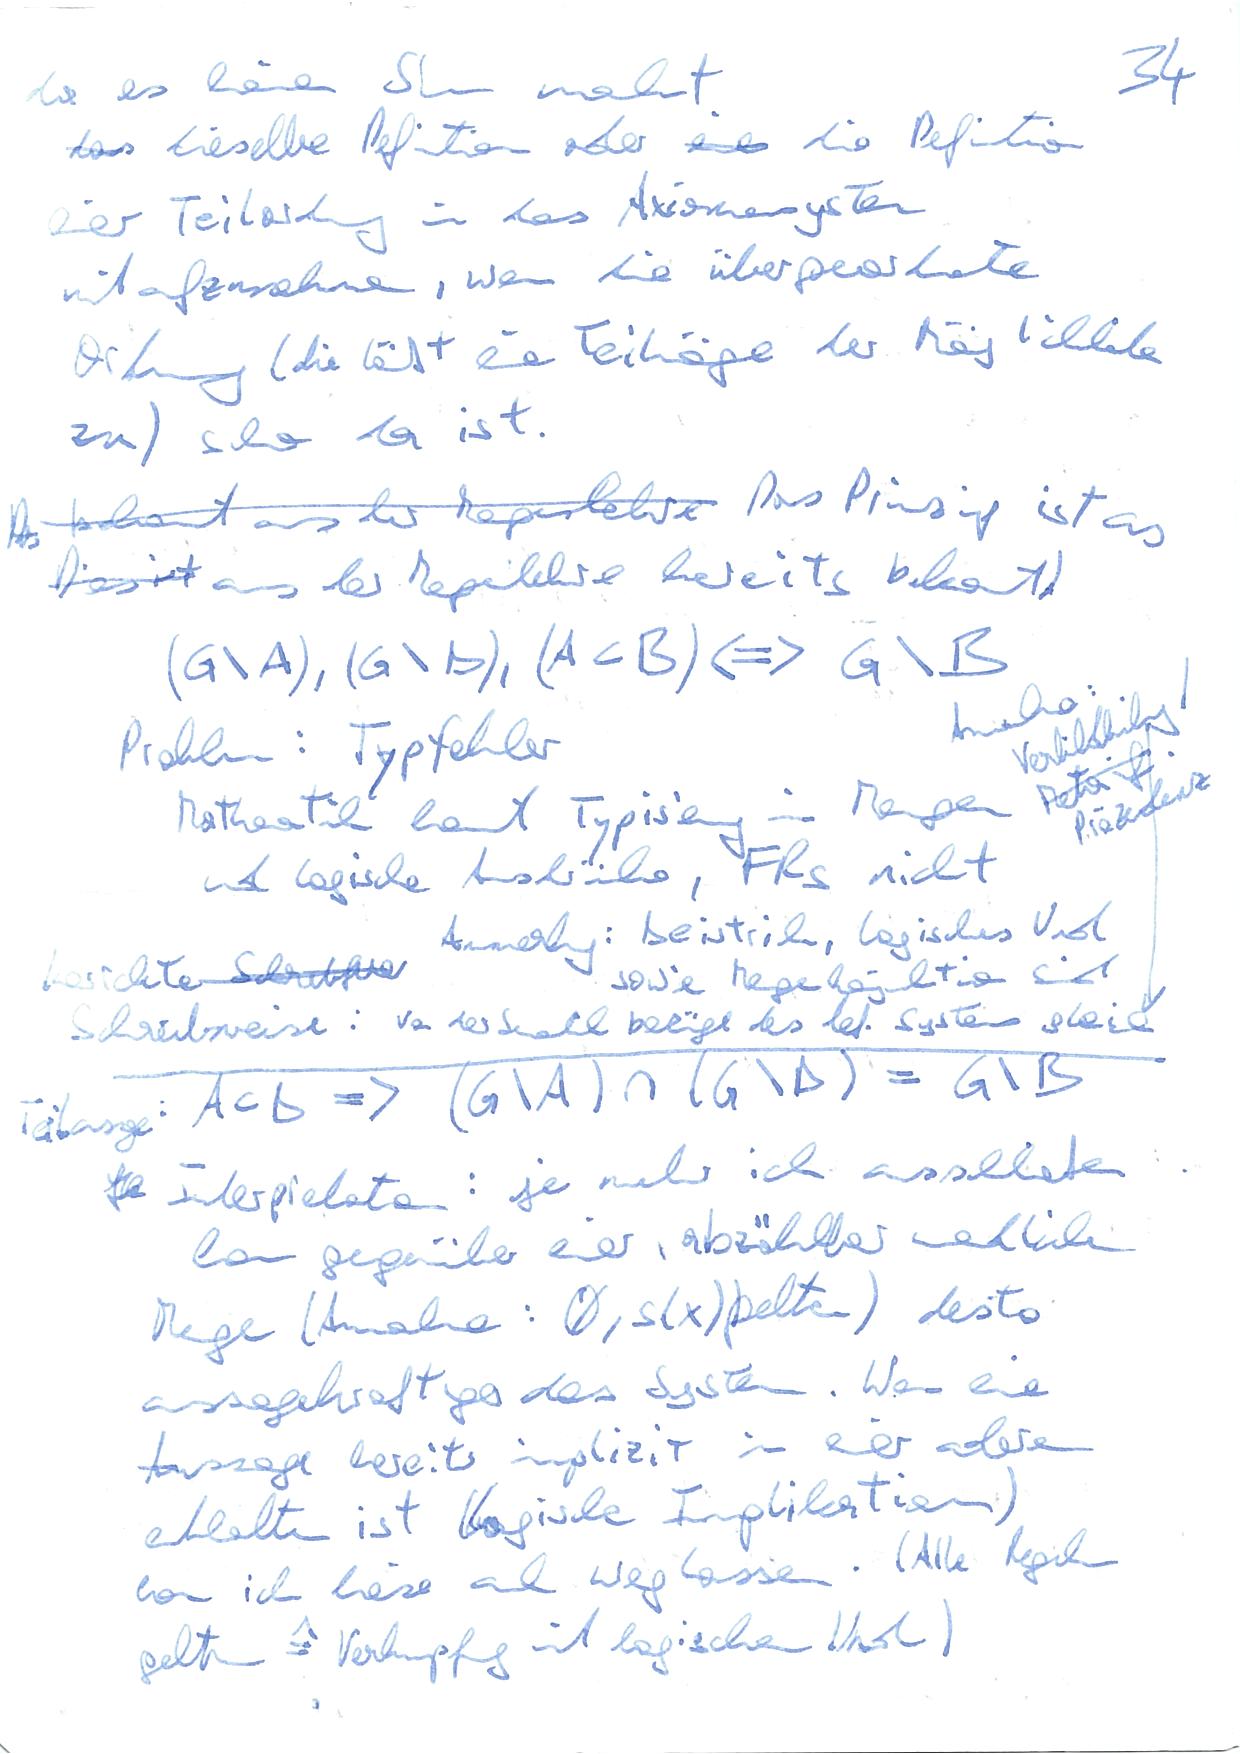 34
da es keinen Sinn macht
das dieselbe Definition oder eine die Definition
einer Teilordnung in das Axiomensystem
mit aufzunehmen, wenn die übergeordnete
Ordnung (die läßt eine Teilmenge der Möglichkeiten
zu) schon da ist.
As bekannt aus der Mengenlehre Das Prinzip ist as
Dies ist aus der Mengenlehre bereits bekannt!
(G\A), (G\B), (A⊂B) <=> G\B
Problem: Typfehler
Annahme:
Verbildlichung
Präzedenz
Mathematik kennt Typisierung in Mengen
und logische Ausdrücke, FRs nicht
Anmerkung: Beistrich, logisches Und
sowie Mengen sind
korrekte Schreibweise
Schreibweise: von der bezüge des def. Systems gleich
Teilmenge: A⊂B => (G\A) ∩ (G\B) = G\B
Interpretation: je mehr ich ausschließen
kann gegenüber einer, abzählbar unendlichen
Menge (Annahme: 0, s(x) gelten) desto
aussagekräftiger das System. Wenn eine
Aussage bereits implizit in einer anderen
enthalten ist (logische Implikation)
kann ich diese auch weglassen. (Alle Regeln
gelten ≙ Verknüpfung mit logischem Und)